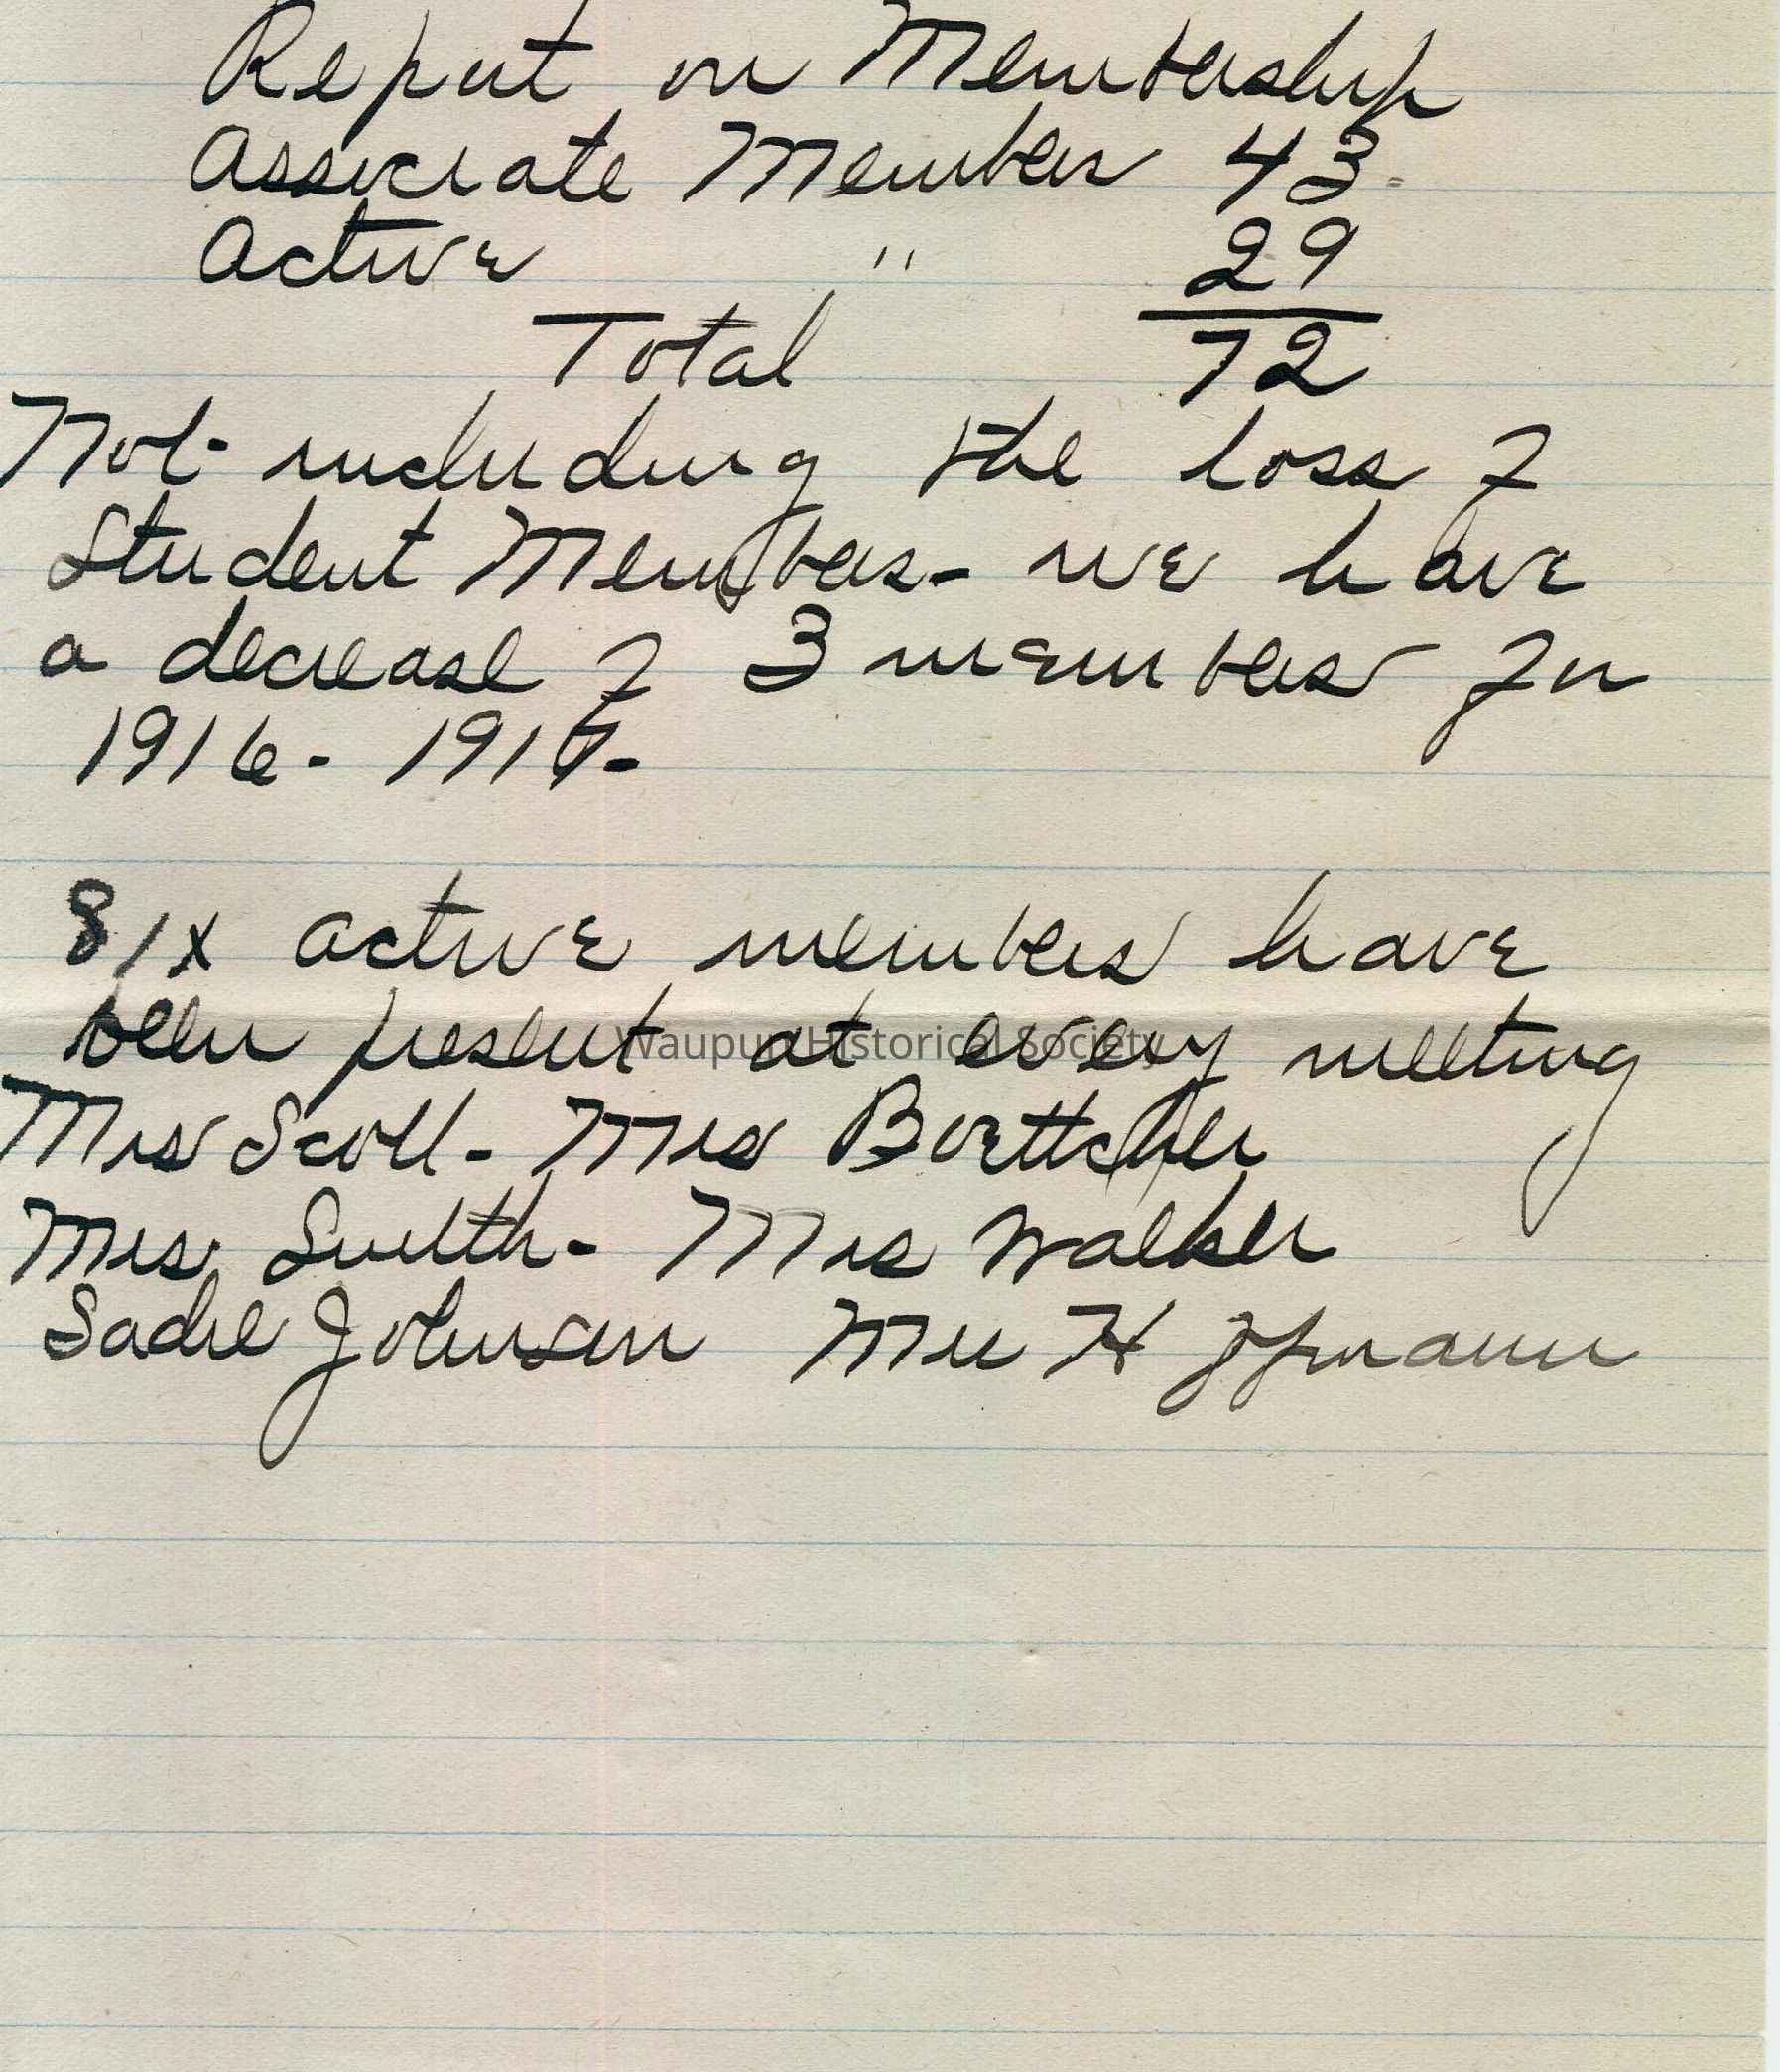 Report on Membership
Associate Member 43
Active " 29
Total 72
Not including the loss of
Student Members - we have
a decrease of 3 members for
1916 - 1917 -
Six active members have
been present at every meeting
Waupun Historical Society
Mrs Scoll - Mrs Boettcher
Mrs. Smith - Mrs Walker
Sadie Johnson Mrs Hoffmann